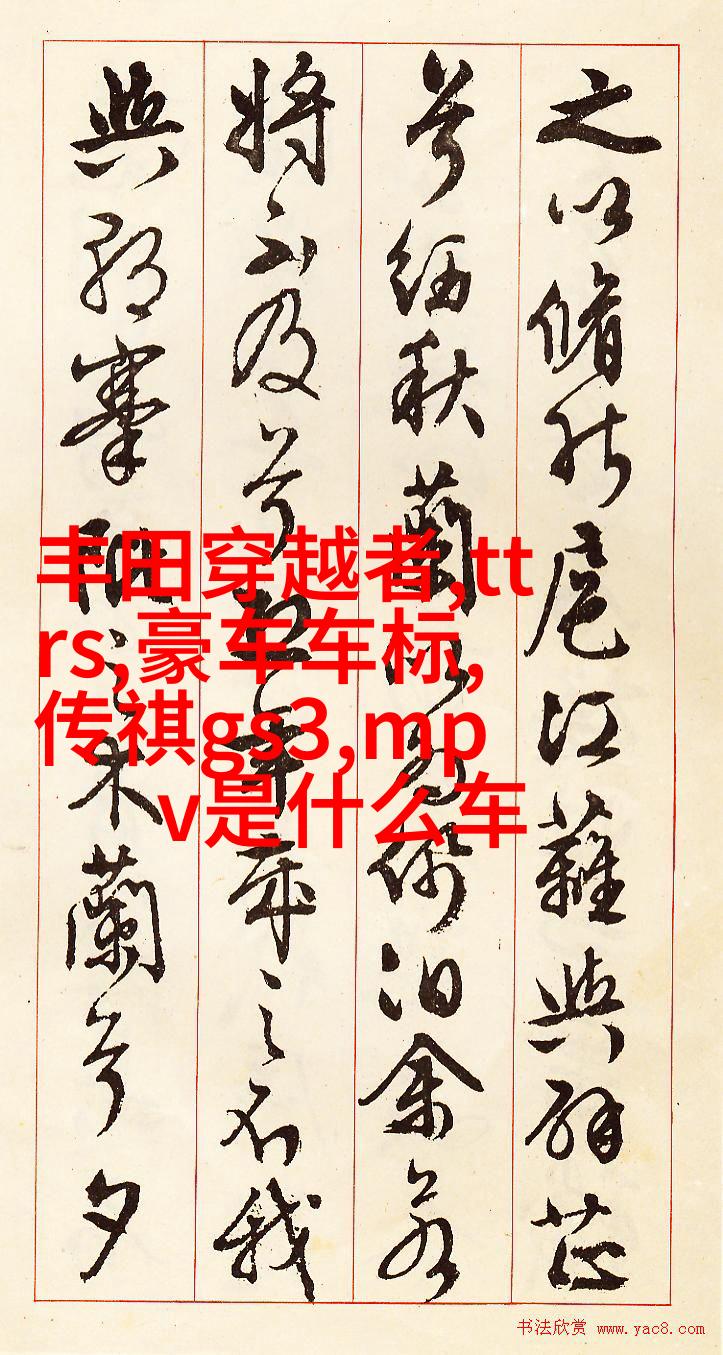 之以脩能扈江蘺與辟芷
兮紉秋蘭以為佩汩余若
將不及兮恐年歲之不我
與朝搴阰之木蘭兮夕
丰田穿越者,tt
rs,豪车车标,
传祺gs3,mp
v是什么车
书法欣赏 www.yac8.com